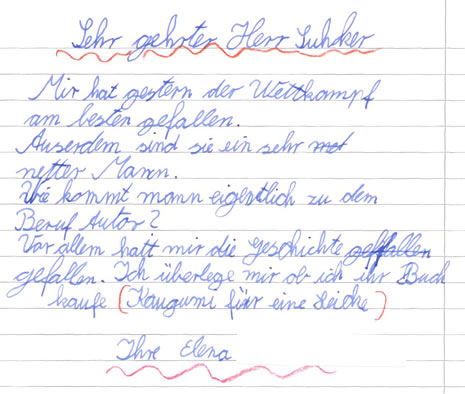 Sehr gehrter Herr Suhcker
Mir hat gestern der Wettkampf
am besten gefallen.
Auserdem sind sie ein sehr
netter Mann.
Wie kommt mann eigentlich zu dem
Beruf Autor?
Vor allem hatt mir die Geschichte gefallen
gefallen. Ich überlege mir ob ich ihr Buch
kaufe (Kaugumi für eine Leiche)
Ihre Elena